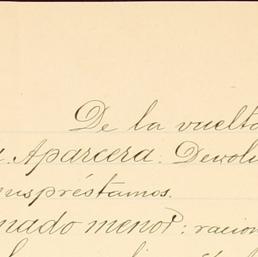 De la vuelta
a. Aparcera: Devolu
mispréstamos.
nado menor: racion